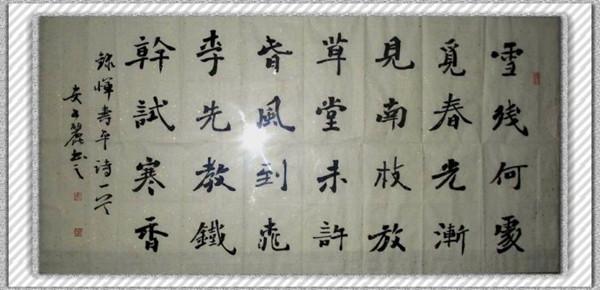 雪殘何處
覓春光漸
見南枝放
草堂未許
春風到桃
李先教鐵
幹試寒香
錄惲壽平詩一首
麗書之